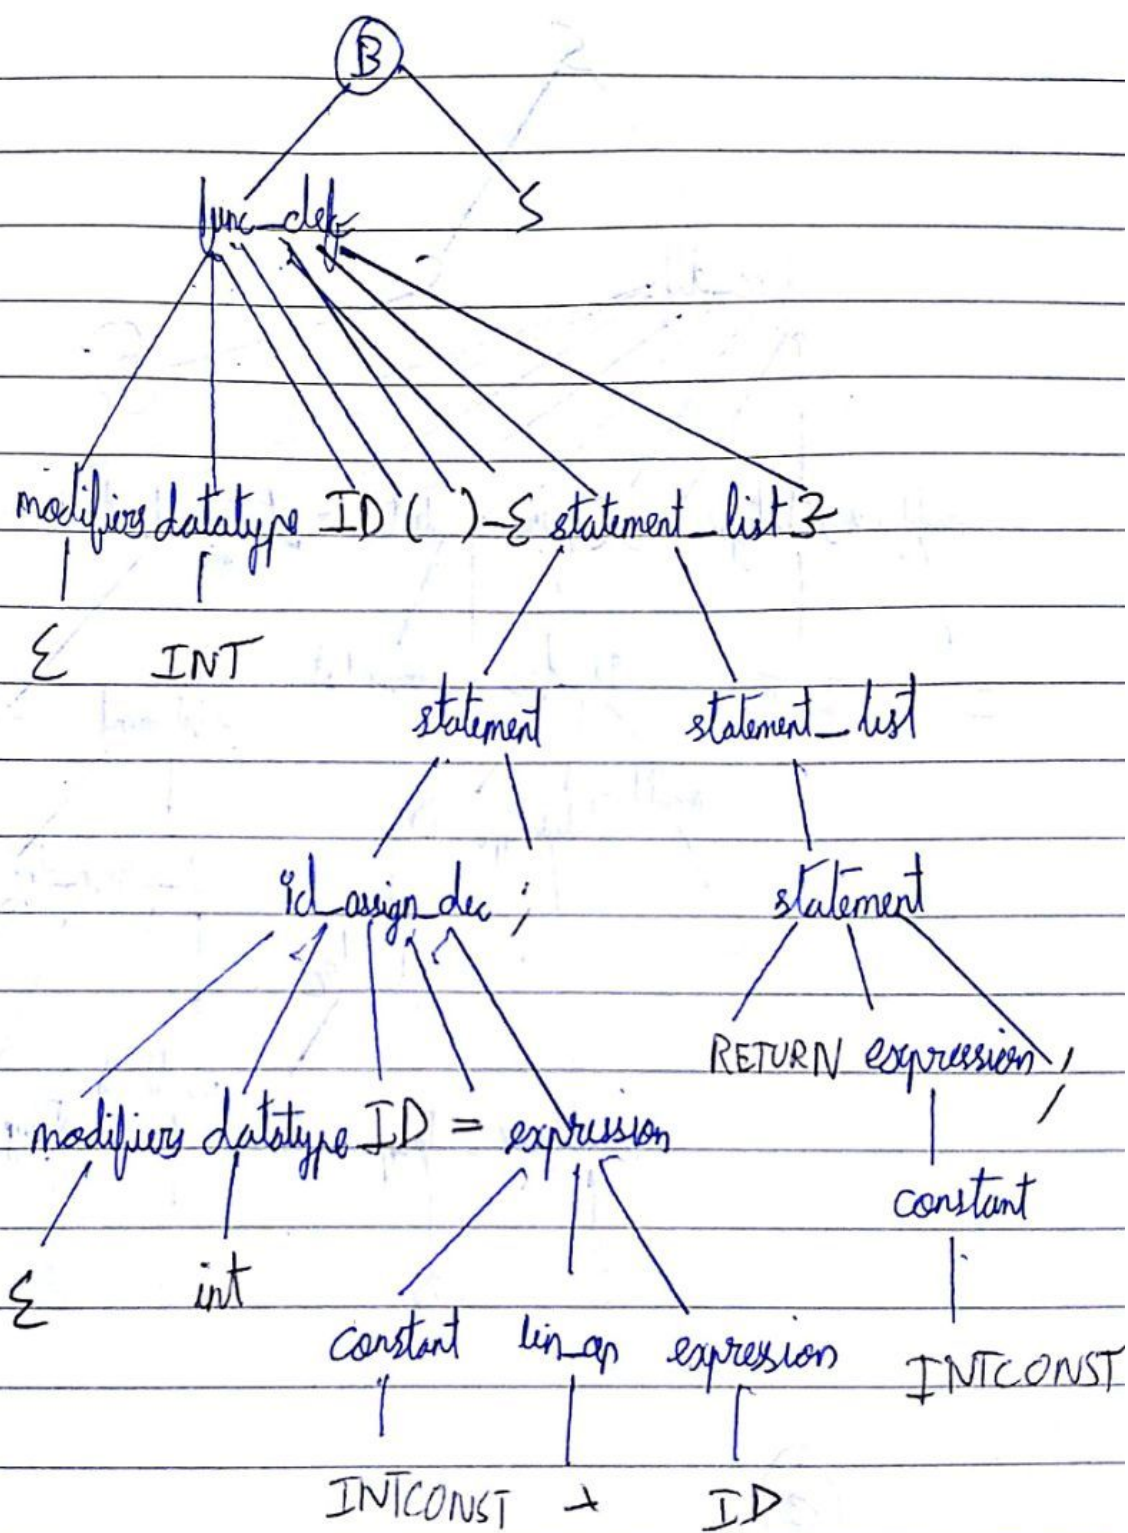 B
func_def S
modifiers datatype ID ( ) { statement_list }
ε INT
statement statement_list
id_assign_dec ; statement
RETURN expression ;
modifiers datatype ID = expression
constant
ε int
constant lin_op expression INTCONST
INTCONST + ID